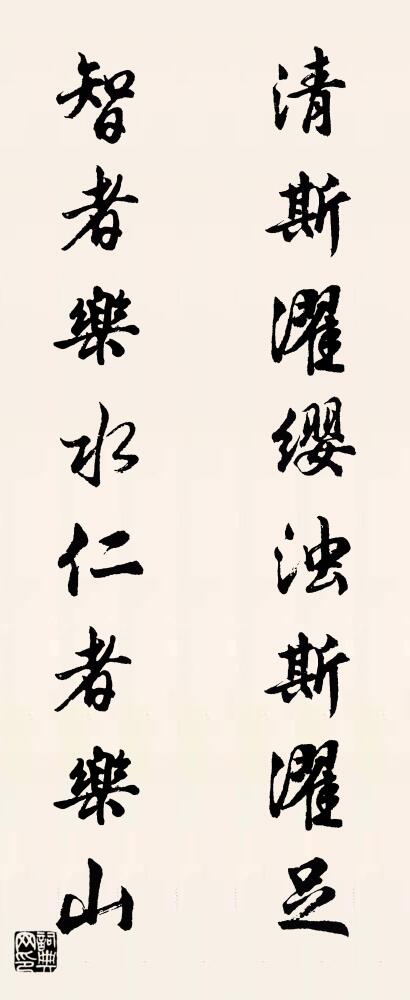 清斯濯缨浊斯濯足
智者樂水仁者樂山
詞典网印